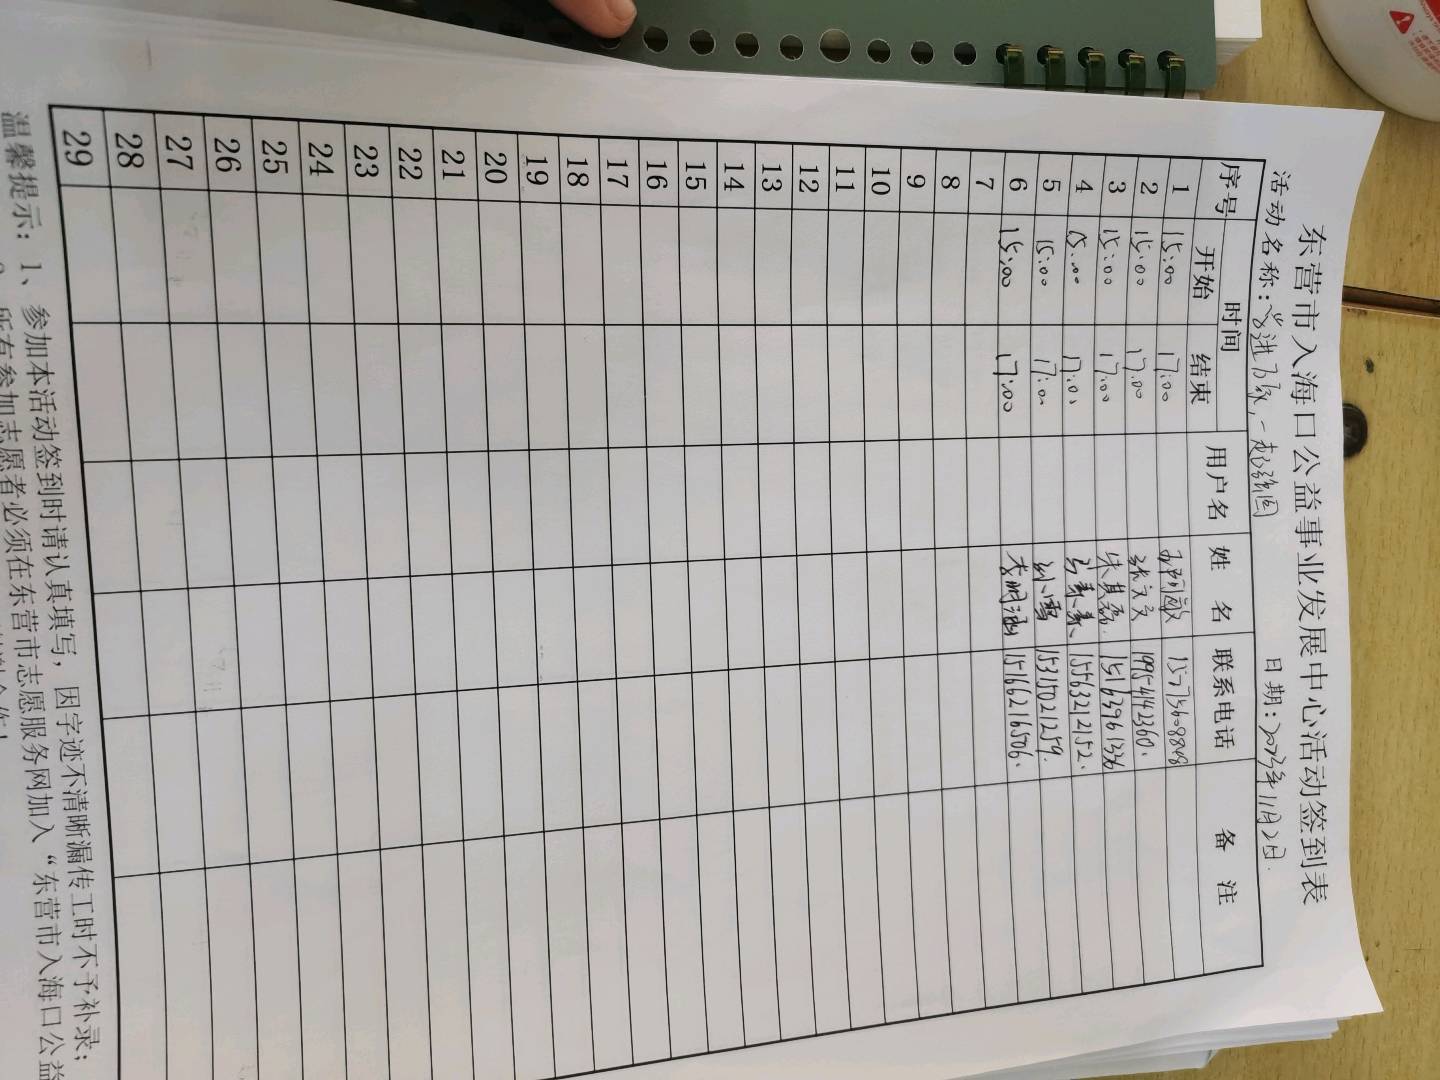 东营市入海口公益事业发展中心活动签到表
活动名称：学进万家，一起强国 日期：2023年11月2日
序号 时间 用户名 姓名 联系电话 备注
开始 结束
1 15:00 17:00
2 15:00 17:00 张文文 19954142360.
3 15:00 17:00 朱其磊. 15163961336
4 15:00 17:00 15563212152.
5 15:00 17:00 孙雪 15315021259.
6 15:00 17:00 李明涵 15166216506.
7
8
9
10
11
12
13
14
15
16
17
18
19
20
21
22
23
24
25
26
27
28
29
温馨提示：1、参加本活动签到时请认真填写，因字迹不清晰漏传工时不予补录；
所有参加志愿者必须在东营市志愿服务网加入“东营市入海口公益